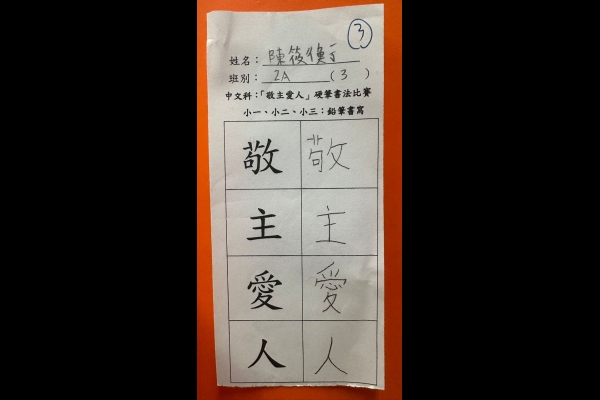 3
姓名：陳筱儀
班別：2A (3)
中文科：「敬主愛人」硬筆書法比賽
小一、小二、小三：鉛筆書寫
敬 敬
主 主
愛 愛
人 人